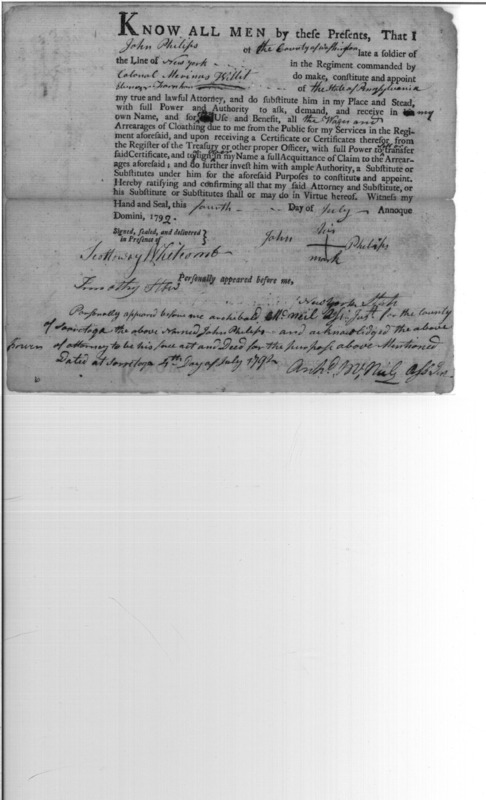 KNOW ALL MEN by these Presents, That I
John Philips of the County of Washington late a soldier of
the Line of New york in the Regiment commanded by
Colonal Merinus Willit do make, constitute and appoint
of the State of Pensylvania
my true and lawful Attorney, and do substitute him in my Place and Stead,
with full Power and Authority to ask, demand, and receive in my
own Name, and for Use and Benefit, all the Wages and
Arrearages of Cloathing due to me from the Public for my Services in the Regi-
ment aforesaid, and upon receiving a Certificate or Certificates therefor, from
the Register of the Treasury or other proper Officer, with full Power to transfer
said Certificate, and to sign in my Name a full Acquittance of Claim to the Arrear-
ages aforesaid; and do further invest him with ample Authority, a Substitute or
Substitutes under him for the aforesaid Purposes to constitute and appoint.
Hereby ratifying and confirming all that my said Attorney and Substitute, or
his Substitute or Substitutes shall or may do in Virtue hereof. Witness my
Hand and Seal, this fourth Day of July Annoque
Domini, 1792.
Signed, sealed, and delivered
in Presence of
John his mark Philips
Whitcomb
Timothy
Personally appeared before me,
New york State
Personally appeard before me archibald McNeil Assi. Just for the County
of Saratoga the above Named John Philips and acknowlidged the above
Power of attorney to be his free act and Deed for the purpose above Mentioned
Dated at Saratoga 4th Day of July 1792
Archd McNeil Assi Jus